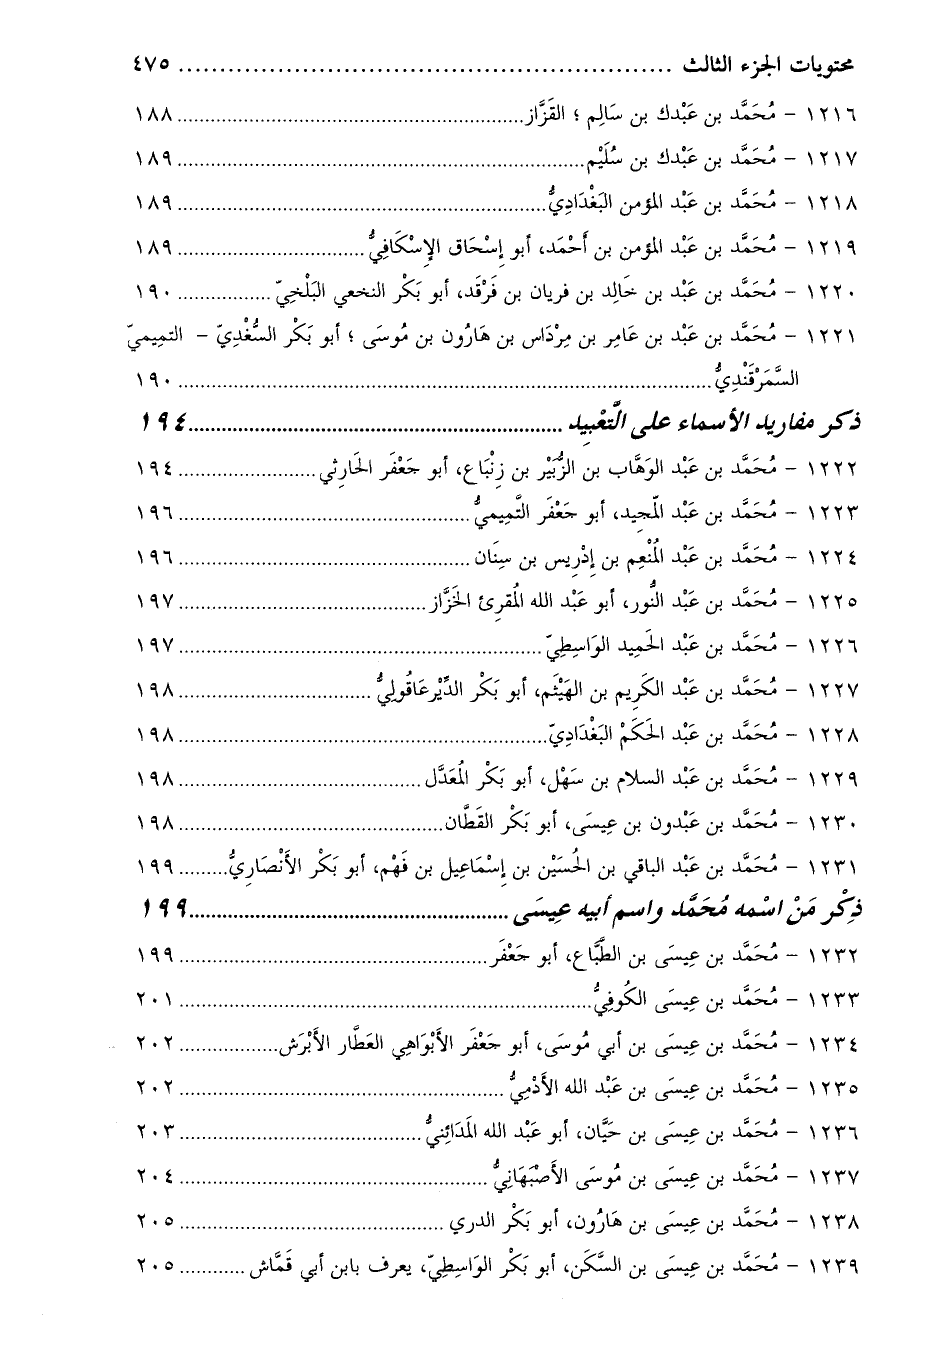 محتويات الجزء الثالث ............ ٤٧٥
١٢١٦ - مُحَمَّد بن عَبْدك بن سَالِم ؛ القَزَّاز ............ ١٨٨
١٢١٧ - مُحَمَّد بن عَبْدك بن سُلَيْم ............ ١٨٩
١٢١٨ - مُحَمَّد بن عَبْد المؤمن البَغْدَادِيُّ ............ ١٨٩
١٢١٩ - مُحَمَّد بن عَبْد المؤمن بن أَحْمَد، أبو إِسْحَاق الإِسْكَافِيُّ ............ ١٨٩
١٢٢٠ - مُحَمَّد بن عَبْد بن خَالِد بن فريان بن فَرْقَد، أبو بَكْر النخعي البَلْخِيّ ............ ١٩٠
١٢٢١ - مُحَمَّد بن عَبْد بن عَامِر بن مِرْدَاس بن هَارُون بن مُوسَى ؛ أبو بَكْر السُّغْدِيّ - التمِيمِيّ
السَّمَرْقَنْدِيُّ ............ ١٩٠
ذكر مفاريد الأسماء على التَّعْبِيد ............ ١٩٤
١٢٢٢ - مُحَمَّد بن عَبْد الوَهَّاب بن الزُّبَيْر بن زِنْبَاع، أبو جَعْفَر الحَارِثي ............ ١٩٤
١٢٢٣ - مُحَمَّد بن عَبْد المجِيد، أبو جَعْفَر التَّمِيميُّ ............ ١٩٦
١٢٢٤ - مُحَمَّد بن عَبْد المُنْعِم بن إِدْرِيس بن سِنَان ............ ١٩٦
١٢٢٥ - مُحَمَّد بن عَبْد النُّور، أبو عَبْد الله المُقرِئ الخَزَّاز ............ ١٩٧
١٢٢٦ - مُحَمَّد بن عَبْد الحَمِيد الوَاسِطِيّ ............ ١٩٧
١٢٢٧ - مُحَمَّد بن عَبْد الكَرِيم بن الهَيْثَم، أبو بَكْر الدَّيْرعَاقُولِيُّ ............ ١٩٨
١٢٢٨ - مُحَمَّد بن عَبْد الحَكَمْ البَغْدَادِيّ ............ ١٩٨
١٢٢٩ - مُحَمَّد بن عَبْد السلام بن سَهْل، أبو بَكْر المُعَدَّل ............ ١٩٨
١٢٣٠ - مُحَمَّد بن عَبْدون بن عِيسَى، أبو بَكْر القَطَّان ............ ١٩٨
١٢٣١ - مُحَمَّد بن عَبْد الباقي بن الحُسَيْن بن إِسْمَاعِيل بن فَهْم، أبو بَكْر الأَنْصَارِيُّ ............ ١٩٩
ذِكْر مَنْ اسْمه مُحَمَّد واسم أبيه عِيسَى ............ ١٩٩
١٢٣٢ - مُحَمَّد بن عِيسَى بن الطَّبَّاع، أبو جَعْفَر ............ ١٩٩
١٢٣٣ - مُحَمَّد بن عِيسَى الكُوفِيُّ ............ ٢٠١
١٢٣٤ - مُحَمَّد بن عِيسَى بن أبي مُوسَى، أبو جَعْفَر الأَبْوَاهِي العَطَّار الأَبْرَش ............ ٢٠٢
١٢٣٥ - مُحَمَّد بن عِيسَى بن عَبْد الله الأَدْمِيُّ ............ ٢٠٢
١٢٣٦ - مُحَمَّد بن عِيسَى بن حَيَّان، أبو عَبْد الله المَدَائِنيُّ ............ ٢٠٣
١٢٣٧ - مُحَمَّد بن عِيسَى بن مُوسَى الأَصْبَهَانِيُّ ............ ٢٠٤
١٢٣٨ - مُحَمَّد بن عِيسَى بن هَارُون، أبو بَكْر الدري ............ ٢٠٥
١٢٣٩ - مُحَمَّد بن عِيسَى بن السَّكَن، أبو بَكْر الوَاسِطِيّ، يعرف بابن أبي قَمَّاش ............ ٢٠٥